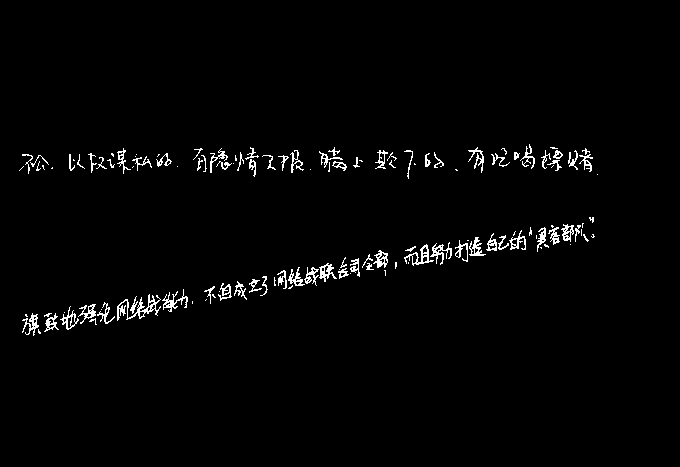 不公、以权谋私的、有隐情不报、瞒上欺下的、有吃喝嫖赌
旗鼓地强化网络战能力，不但成立了网络战联合司令部，而且努力打造自己的“黑客部队”。